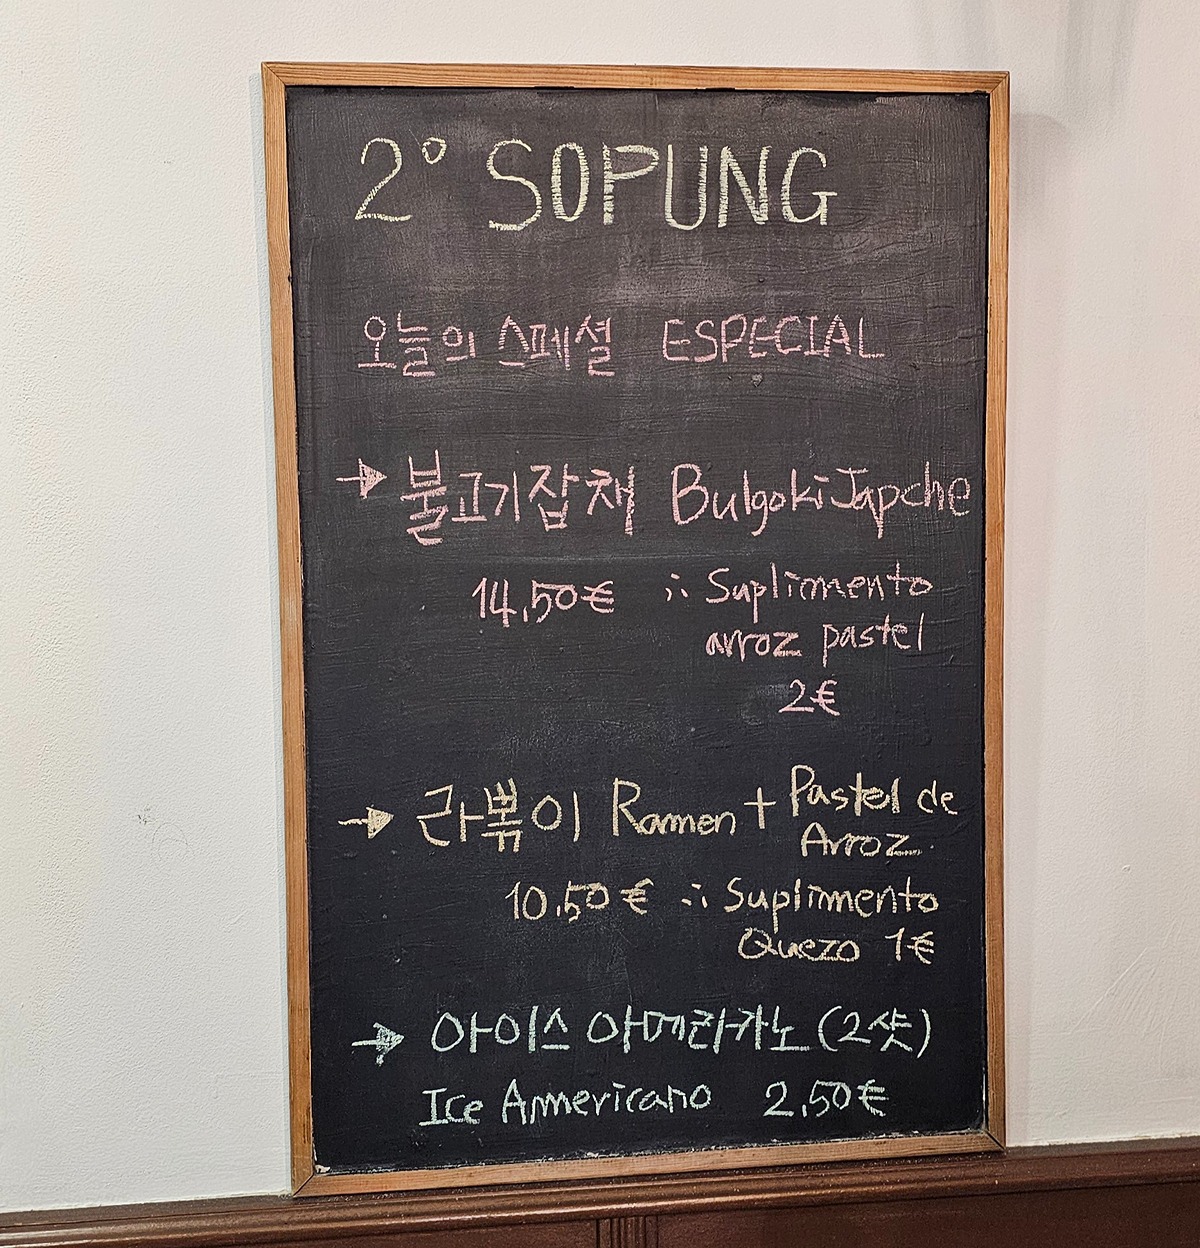 2° SOPUNG
오늘의 스페셜 ESPECIAL
불고기잡채 Bulgoki Japche
14,50€ ∴ Suplimento
arroz pastel
2€
라볶이 Ramen + Pastel de
Arroz
10,50€ ∴ Suplimento
Quezo 1€
아이스 아메리카노 (2샷)
Ice Anmericano 2,50€